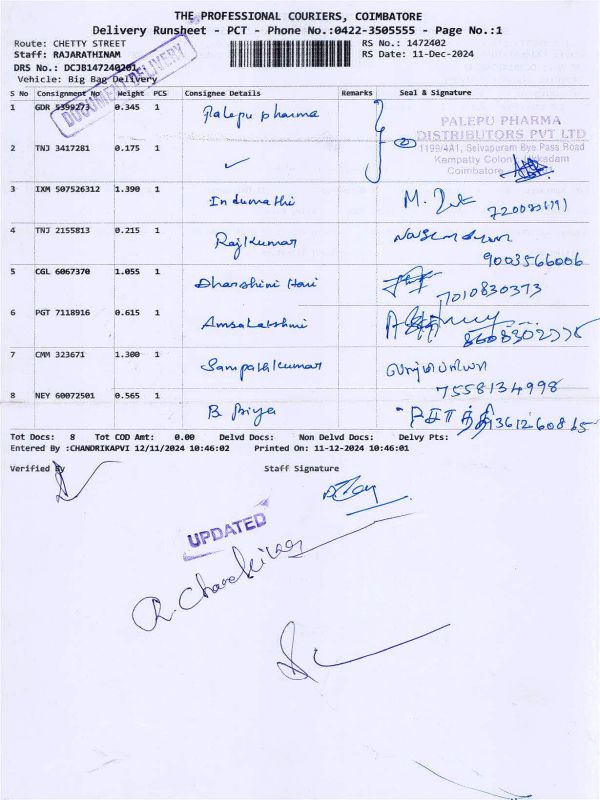 THE PROFESSIONAL COURIERS, COIMBATORE
Delivery Runsheet - PCT - Phone No.:0422-3505555 - Page No.:1
Route: CHETTY STREET
RS No.: 1472402
Staff: RAJARATHINAM
RS Date: 11-Dec-2024
DRS No.: DCJB147240201
DOCUMENT DELIVERY
Vehicle: Big Bag Delivery
S No Consignment No Weight PCS Consignee Details Remarks Seal & Signature
1 GDR 5399273 0.345 1 Palepu pharma
PALEPU PHARMA
DISTRIBUTORS PVT LTD
2 TNJ 3417281 0.175 1 ✓ 2
1199/4A1, Selvapuram Bye Pass Road
Kempatty Colony
Coimbatore
3 IXM 507526312 1.390 1 Indumathi
4 TNJ 2155813 0.215 1 Rajkumar
9003566006
5 CGL 6067370 1.055 1 Dharshini Hari
7010830373
6 PGT 7118916 0.615 1 Amsalakshmi
7 CMM 323671 1.300 1 Sampathkumar
7558134998
8 NEY 60072501 0.565 1 B Priya
Tot Docs: 8 Tot COD Amt: 0.00 Delvd Docs: Non Delvd Docs: Delvy Pts:
Entered By :CHANDRIKAPVI 12/11/2024 10:46:02 Printed On: 11-12-2024 10:46:01
Verified By
Staff Signature
UPDATED